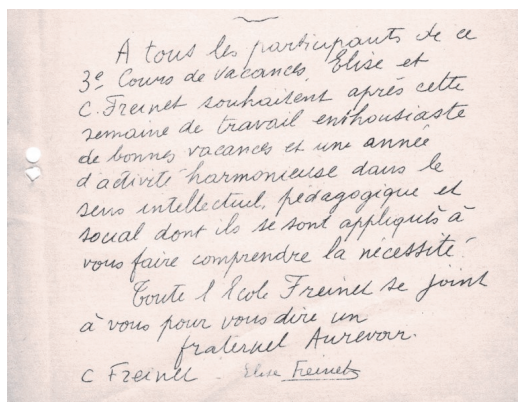 A tous les participants de ce
3e Cours de vacances, Elise et
C. Freinet souhaitent après cette
semaine de travail enthousiaste
de bonnes vacances et une année
d'activité harmonieuse dans le
sens intellectuel, pédagogique et
social dont ils se sont appliqués à
vous faire comprendre la nécessité.
Toute l'Ecole Freinet se joint
à vous pour vous dire un
fraternel Aurevoir.
C Freinet Elise Freinet